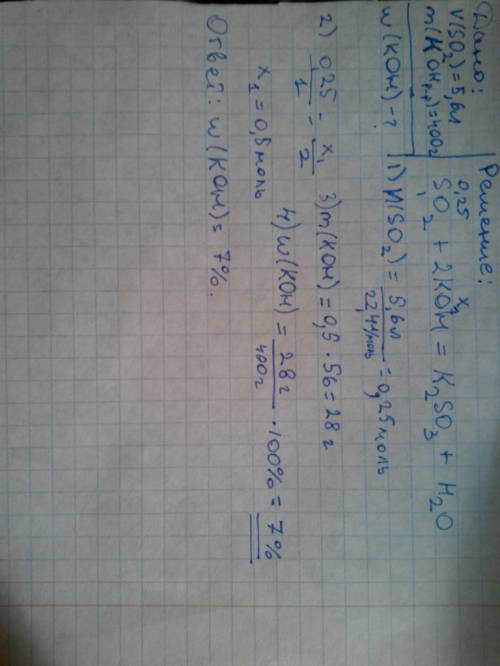 Дано:
V(SO2)=5,6л
m(KOH р-р)=400г
w(KOH)-?
Решение:
0,25 x1
SO2 + 2KOH = K2SO3 + H2O
1
1) n(SO2) = 5,6л / 22,4л/моль = 0,25моль
2) 0,25 / 1 = x1 / 2
x1 = 0,5моль
3) m(KOH) = 0,5 · 56 = 28 г
4) w(KOH) = 28 г / 400г · 100% = 7%
Ответ: w(KOH) = 7%.